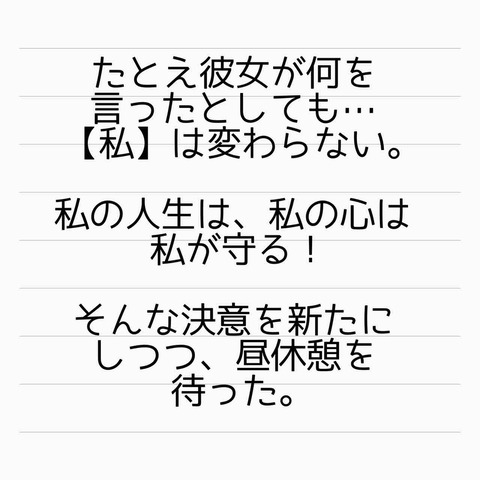 たとえ彼女が何を
言ったとしても…
【私】は変わらない。
私の人生は、私の心は
私が守る！
そんな決意を新たに
しつつ、昼休憩を
待った。